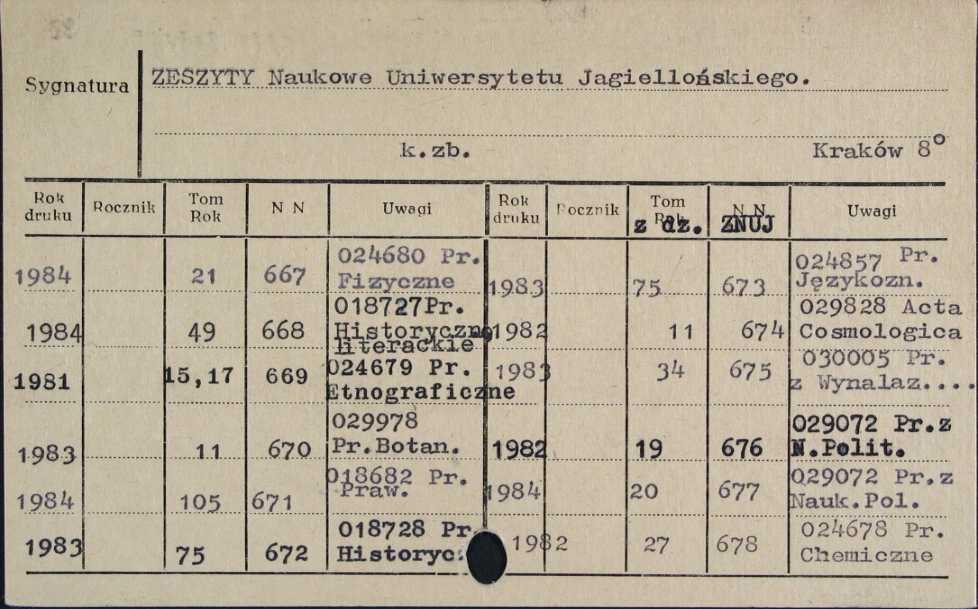 Sygnatura
ZESZYTY Naukowe Uniwersytetu Jagiellońskiego.
k.zb. Kraków 8°
Rok druku Rocznik Tom Rok N N Uwagi Rok druku Rocznik Tom Rok N N Uwagi
z dz. ZNUJ
1984 21 667 024680 Pr. Fizyczne
1984 49 668 018727Pr. Historyczno literackie
1981 15,17 669 024679 Pr. Etnograficzne
1983 11 670 029978 Pr.Botan.
1984 105 671 018682 Pr. Praw.
1983 75 672 018728 Pr. Historyc.
1983 75 673 024857 Pr. Językozn.
1982 11 674 029828 Acta Cosmologica
1983 34 675 030005 Pr. z Wynalaz....
1982 19 676 029072 Pr.z N.Polit.
1984 20 677 029072 Pr.z Nauk.Pol.
1982 27 678 024678 Pr. Chemiczne